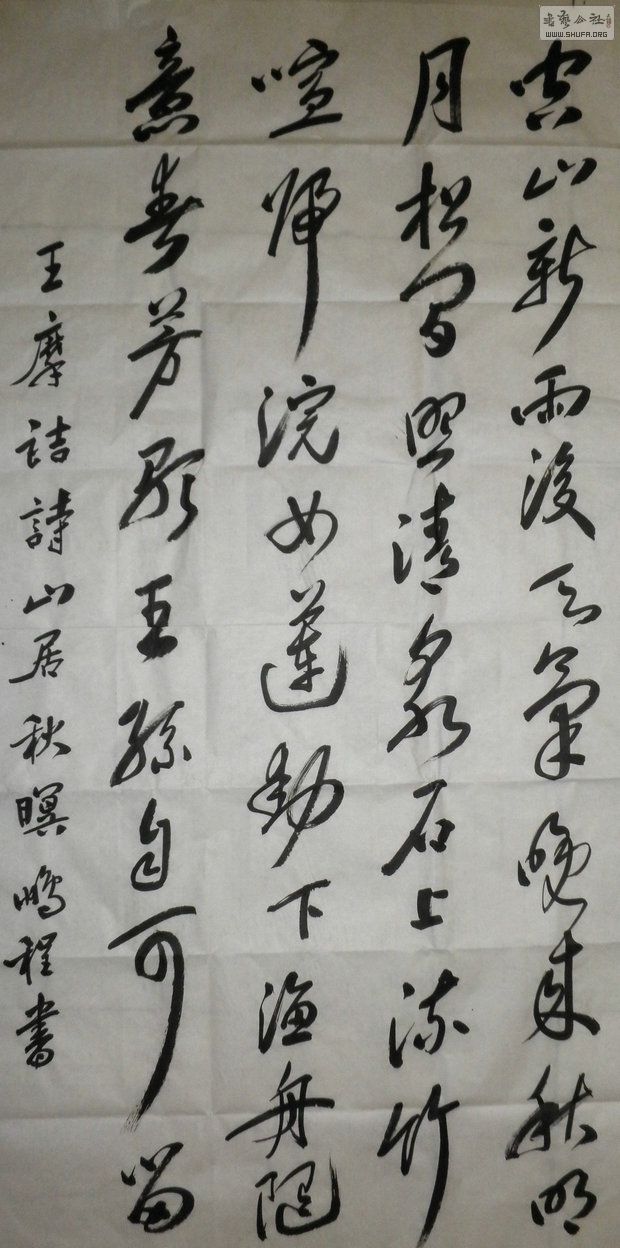 空山新雨後天氣晚来秋明
月松間照清泉石上流竹
喧歸浣女蓮動下漁舟隨
意春芳歇王孫自可留
王摩詰詩山居秋暝鵬程書
書藝公社
WWW.SHUFA.ORG